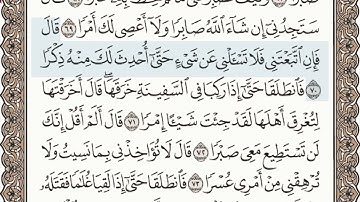 سَتَجِدُنِىٓ إِن شَآءَ ٱللَّهُ صَابِرًا وَلَآ أَعْصِى لَكَ أَمْرًا ٦٩ قَالَ
فَإِنِ ٱتَّبَعْتَنِى فَلَا تَسْـَٔلْنِى عَن شَىْءٍ حَتَّىٰٓ أُحْدِثَ لَكَ مِنْهُ ذِكْرًا
٧٠ فَٱنطَلَقَا حَتَّىٰٓ إِذَا رَكِبَا فِى ٱلسَّفِينَةِ خَرَقَهَا ۖ قَالَ أَخَرَقْتَهَا
لِتُغْرِقَ أَهْلَهَا لَقَدْ جِئْتَ شَيْـًٔا إِمْرًا ٧١ قَالَ أَلَمْ أَقُلْ إِنَّكَ
لَن تَسْتَطِيعَ مَعِىَ صَبْرًا ٧٢ قَالَ لَا تُؤَاخِذْنِى بِمَا نَسِيتُ وَلَا
تُرْهِقْنِى مِنْ أَمْرِى عُسْرًا ٧٣ فَٱنطَلَقَا حَتَّىٰٓ إِذَا لَقِيَا غُلَـٰمًا فَقَتَلَهُۥ